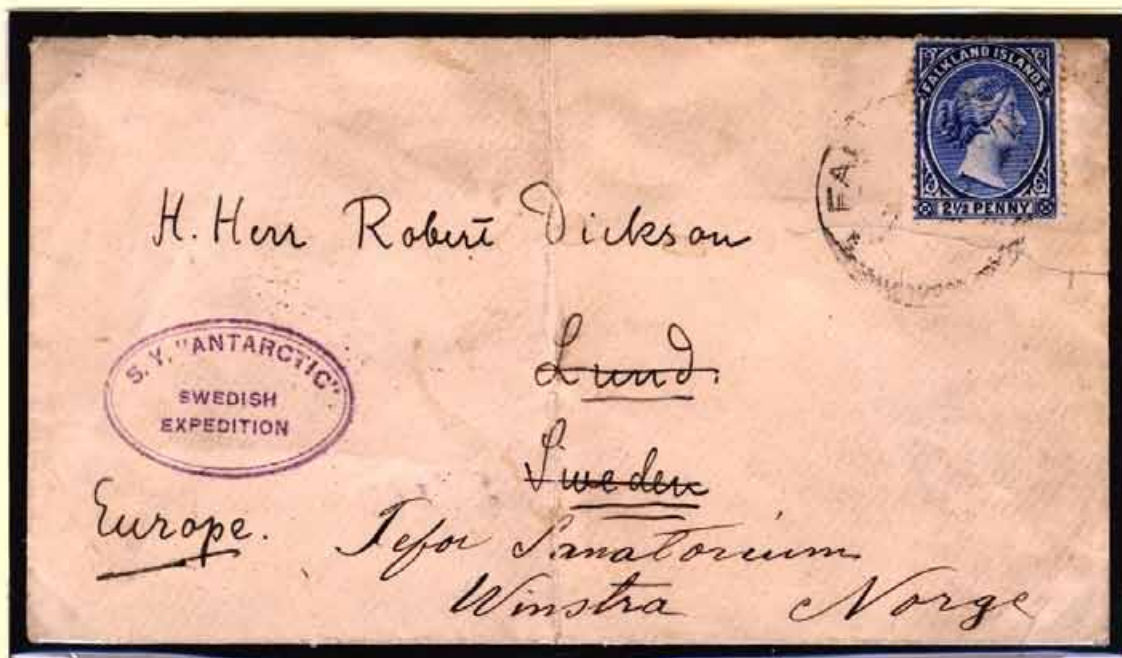 FALKLAND ISLANDS
2½ PENNY
FA
H. Herr Robert Dickson
S. Y. "ANTARCTIC"
SWEDISH
EXPEDITION
Lund.
Sweden
Europe.
Tefor Sanatorium
Winstra Norge